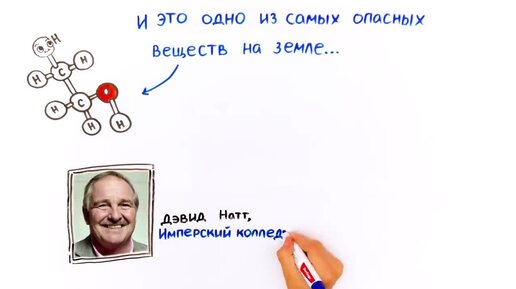 И ЭТО ОДНО ИЗ САМЫХ ОПАСНЫХ
ВЕЩЕСТВ НА ЗЕМЛЕ...
H
H
H
C
H
C
O
H
H
H
ДЭВИД НАТТ,
ИМПЕРСКИЙ КОЛЛЕД